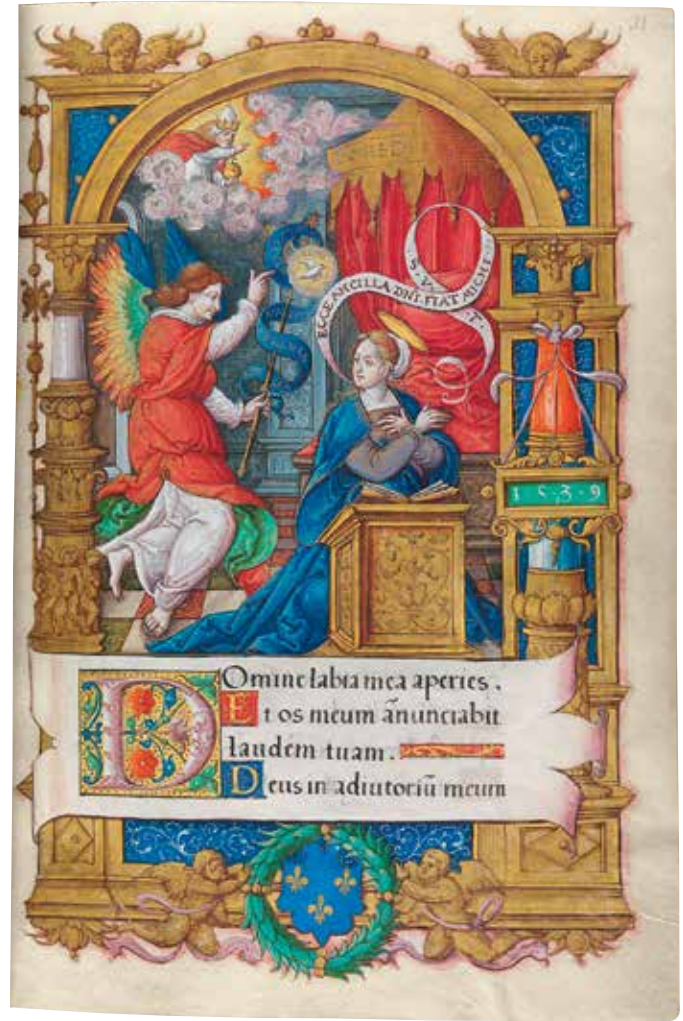 ECCE ANCILLA DNI. FIAT MICHI
· S · V ·
· T ·
1 · 5 · 3 · 9
DOmine labia mea aperies .
Et os meum ānunciabit
laudem tuam .
Deus in adiutoriū meum